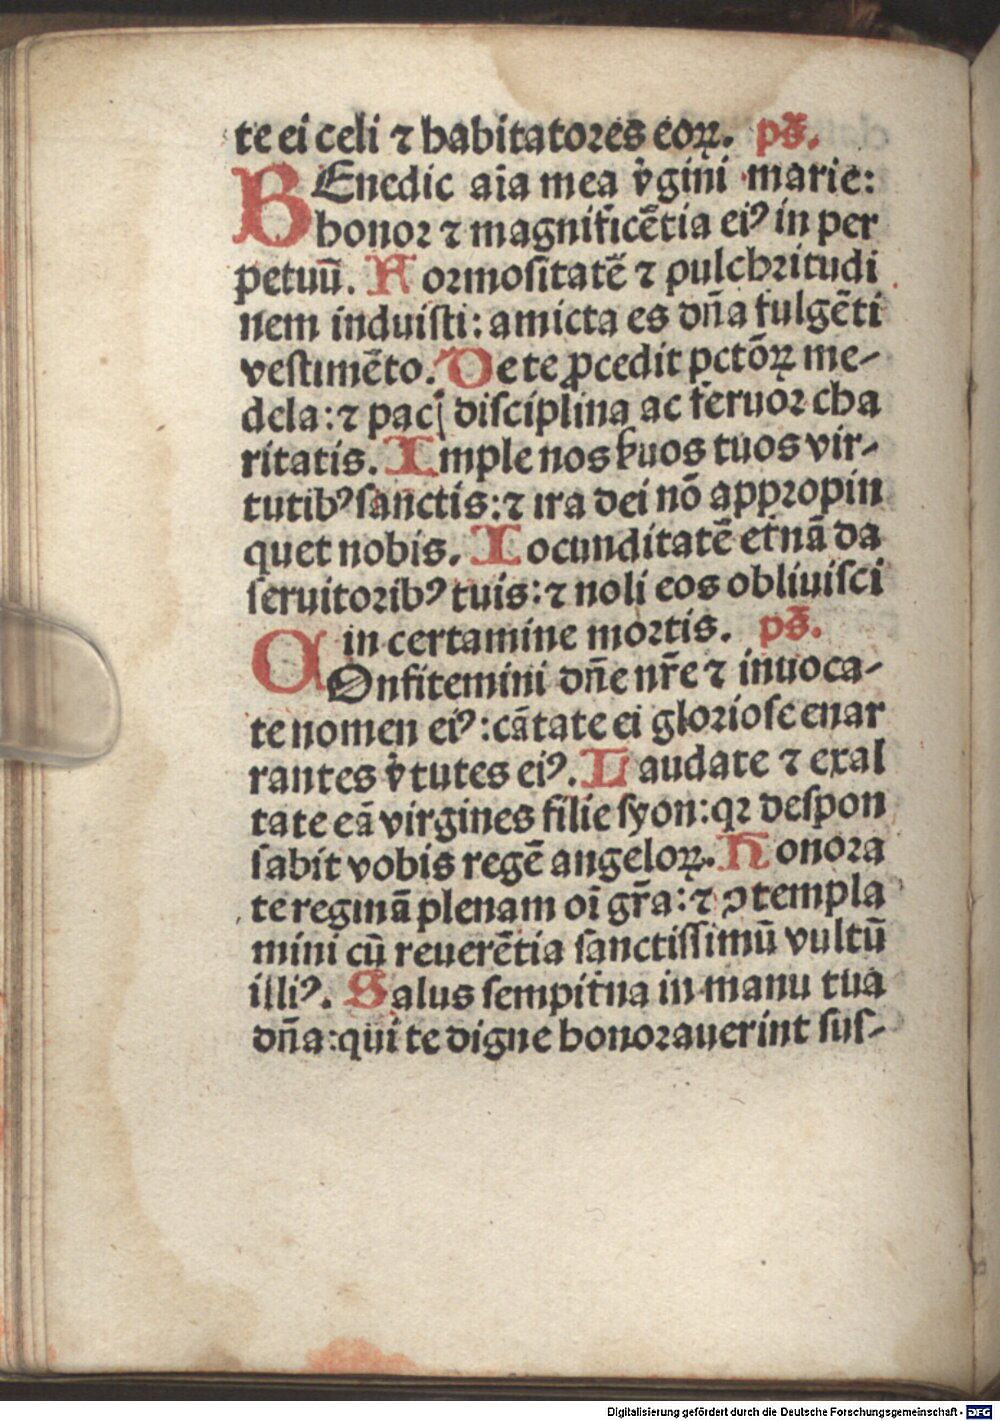 te ei celi ⁊ habitatores eoꝝ. ps̄.
BEnedic aīa mea v̄gini marie:
honor ⁊ magnificētia eiꝰ in per
petuū. Formositatē ⁊ pulchritudi
nem induisti: amicta es dn̄a fulgēti
vestimēto. De te ꝓcedit pctōꝝ me-
dela: ⁊ pacꝭ disciplina ac feruor cha
ritatis. Imple nos ẜuos tuos vir-
tutibꝰ sanctis: ⁊ ira dei nō appropin
quet nobis. Iocunditatē et̄nā da
seruitoribꝰ tuis: ⁊ noli eos obliuisci
in certamine mortis. ps̄.
COnfitemini dn̄e nr̄e ⁊ inuoca-
te nomen eiꝰ: cātate ei gloriose enar
rantes v̄tutes eiꝰ. Laudate ⁊ exal
tate eā virgines filie syon: qꝛ despon
sabit vobis regē angeloꝝ. Honora
te reginā plenam oī gr̄a: ⁊ ꝯtempla
mini cū reuerētia sanctissimū vultū
illiꝰ. Salus sempit̄na in manu tua
dn̄a: qui te digne honorauerint sus-
Digitalisierung gefördert durch die Deutsche Forschungsgemeinschaft - DFG